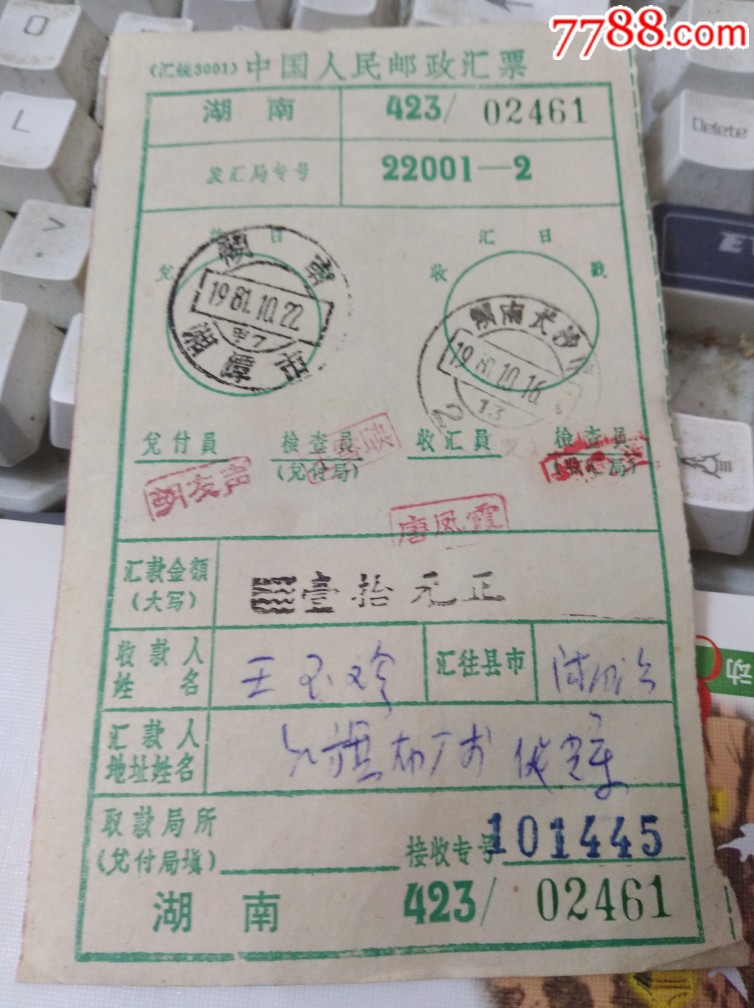 7788.com
O
L
Delete
(汇统3001) 中国人民邮政汇票
湖南 423/ 02461
发汇局专号 22001—2
兑 付 日
收 汇 日 戳
湖南
1981.10.22
甲7
湘潭市
湖南长沙
10.16
13
兑付員 检查員 收汇員 检查員
(兑付局)
胡友声
唐凤霞
汇款金額
(大写) 壹拾元正
收款人
姓名 王玉珍 汇往县市
汇款人
地址姓名 红旗
取款局所
(兑付局填) 接收专号 101445
湖南 423/ 02461
动